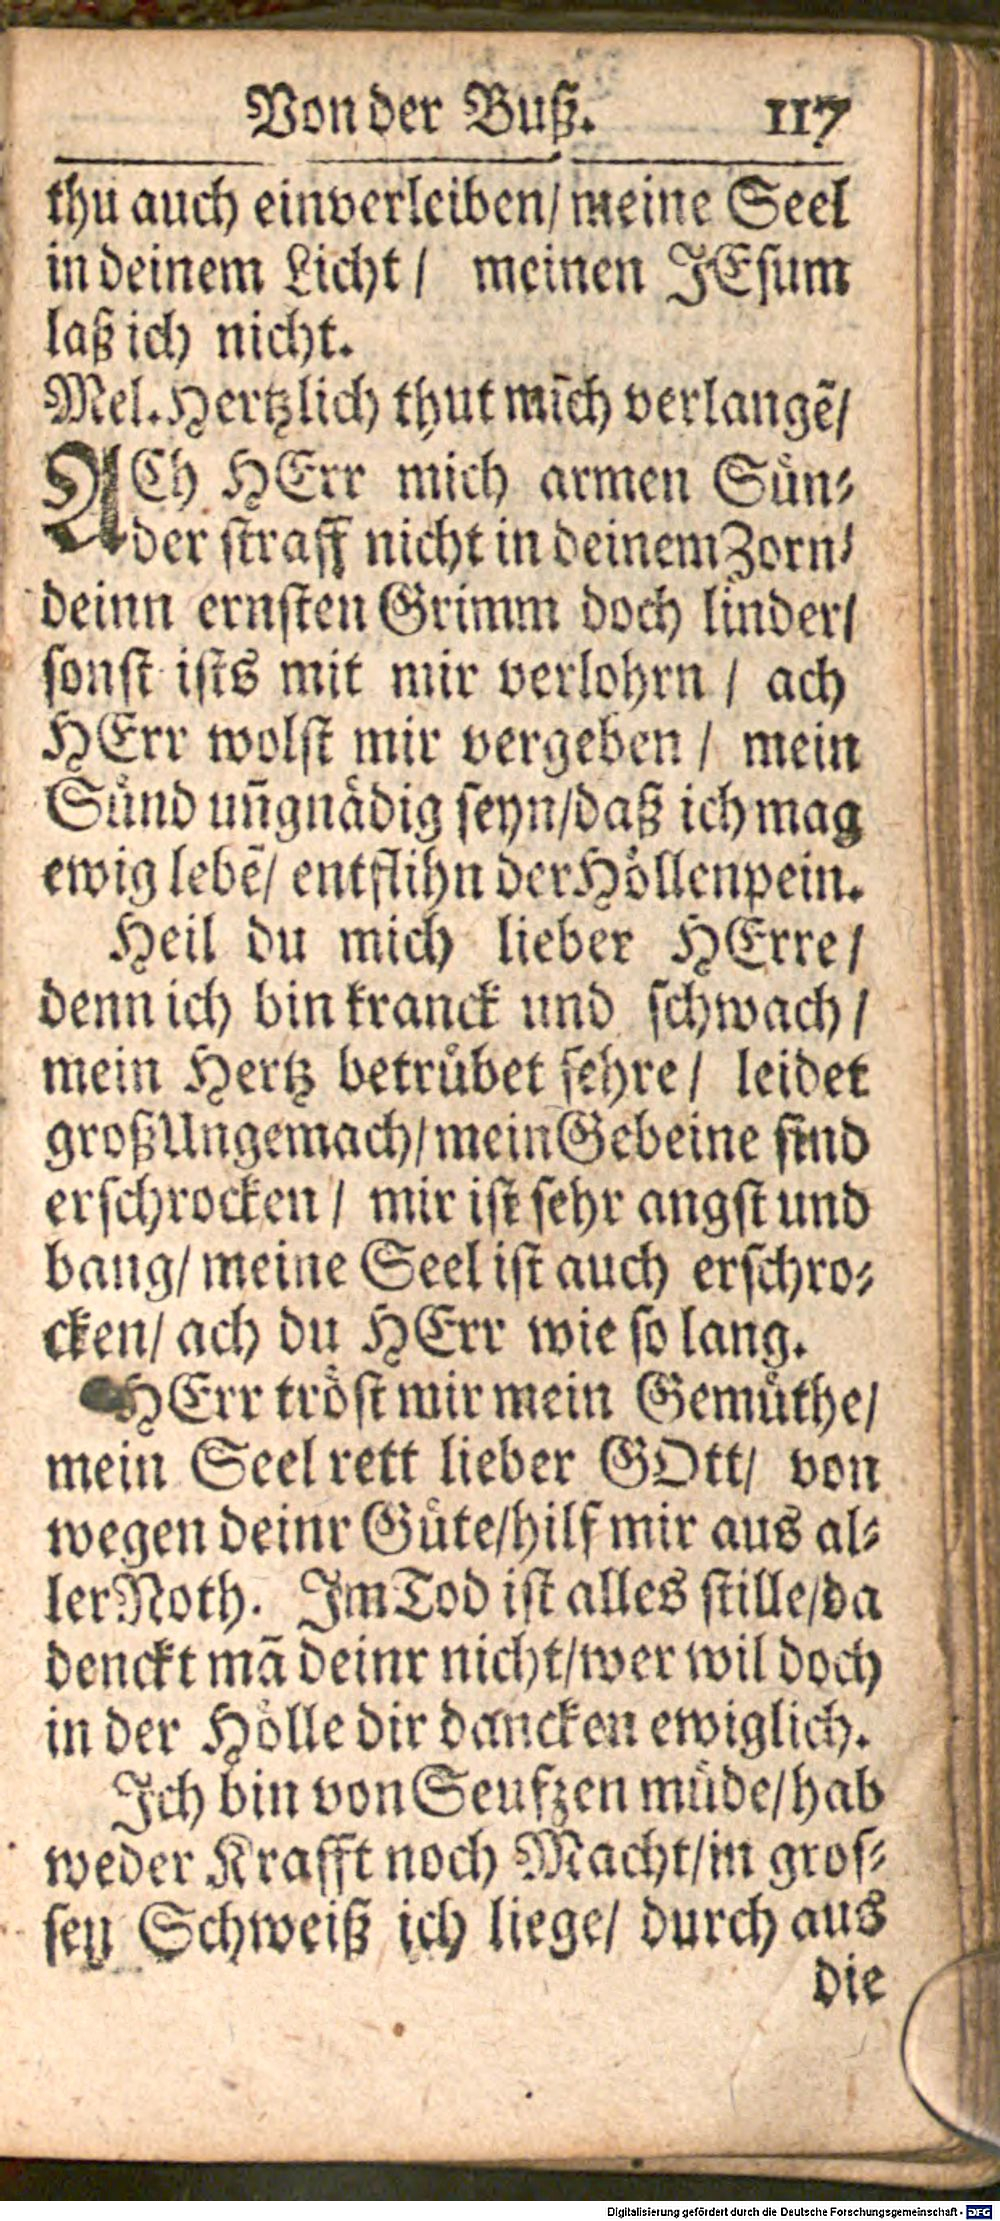 Von der Buß. 117
thu auch einverleiben/ meine Seel
in deinem Licht / meinen JEsum
laß ich nicht.
Mel. Hertzlich thut mich verlangẽ/
ACh HErr mich armen Sünꝛ
der straff nicht in deinem Zorn/
deinn ernsten Grimm doch linder/
sonst ists mit mir verlohrn / ach
HErr wolst mir vergeben / mein
Sünd uñ gnädig seyn/ daß ich mag
ewig lebẽ/ entflihn der Höllenpein.
Heil du mich lieber HErre /
denn ich bin kranck und schwach /
mein Hertz betrübet sehre / leidet
groß Ungemach/ mein Gebeine sind
erschrocken / mir ist sehr angst und
bang/ meine Seel ist auch erschro-
cken/ ach du HErr wie so lang.
HErr tröst mir mein Gemüthe/
mein Seel rett lieber GOtt/ von
wegen deinr Güte/ hilf mir aus al-
ler Noth. Im Tod ist alles stille/ da
denckt mã deinr nicht/ wer wil doch
in der Hölle dir dancken ewiglich.
Ich bin von Seufzen müde/ hab
weder Krafft noch Macht/ in gros-
sen Schweiß ich liege/ durch aus
die
Digitalisierung gefördert durch die Deutsche Forschungsgemeinschaft - DFG